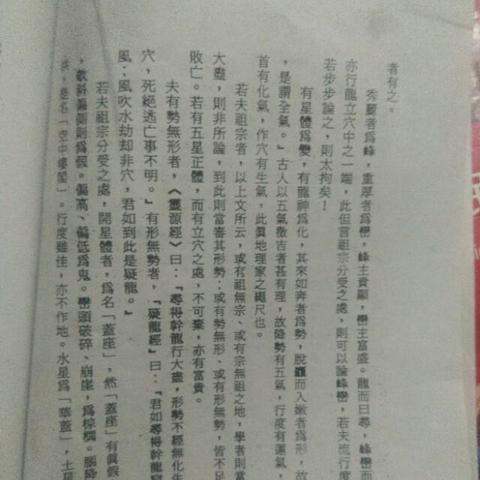 者有之。
秀麗者為峰，重厚者為巒，峰主貴顯，巒主富盛。龍而曰尋，峰巒而
亦行龍立穴中之一端，此但言祖宗分受之處，則可以論峰巒，若夫流行度
若步步論之，則太拘矣！
有星體為變，有龍神為化，其來如奔者為勢，脫而入嫩者為形，故
首有化氣，作穴有生氣，此真地理家之繩尺也。
，是謂全氣。」古人以五氣徵吉者甚有理，故降勢有五氣，行度有運氣，
若夫祖宗者，以上文所云，或有祖無宗、或有宗無祖之地，學者則當
大盡，則非所論，到此則當審其形勢：或有勢無形、或有形無勢，皆不足
敗亡。若有五星正體，而有立穴之處，不可棄，亦有富貴。
夫有勢無形者，《靈源經》曰：「尋得幹龍行大盡，形勢不經無化生
穴，死絕逃亡事不明。」有形無勢者，「疑龍經」曰：「君如尋得幹龍窮
風：風吹水劫却非穴，君如到此是疑龍。」
若夫祖宗分受之處，開星體者，為名「蓋座」，然「蓋座」有真假
，欹斜偏側則為假。偏高、偏低為鬼。巒頭破碎、崩崖，為棕櫚。腦
，是名「空中樓閣」。行度雖佳，亦不作地。水星為「華蓋」，土